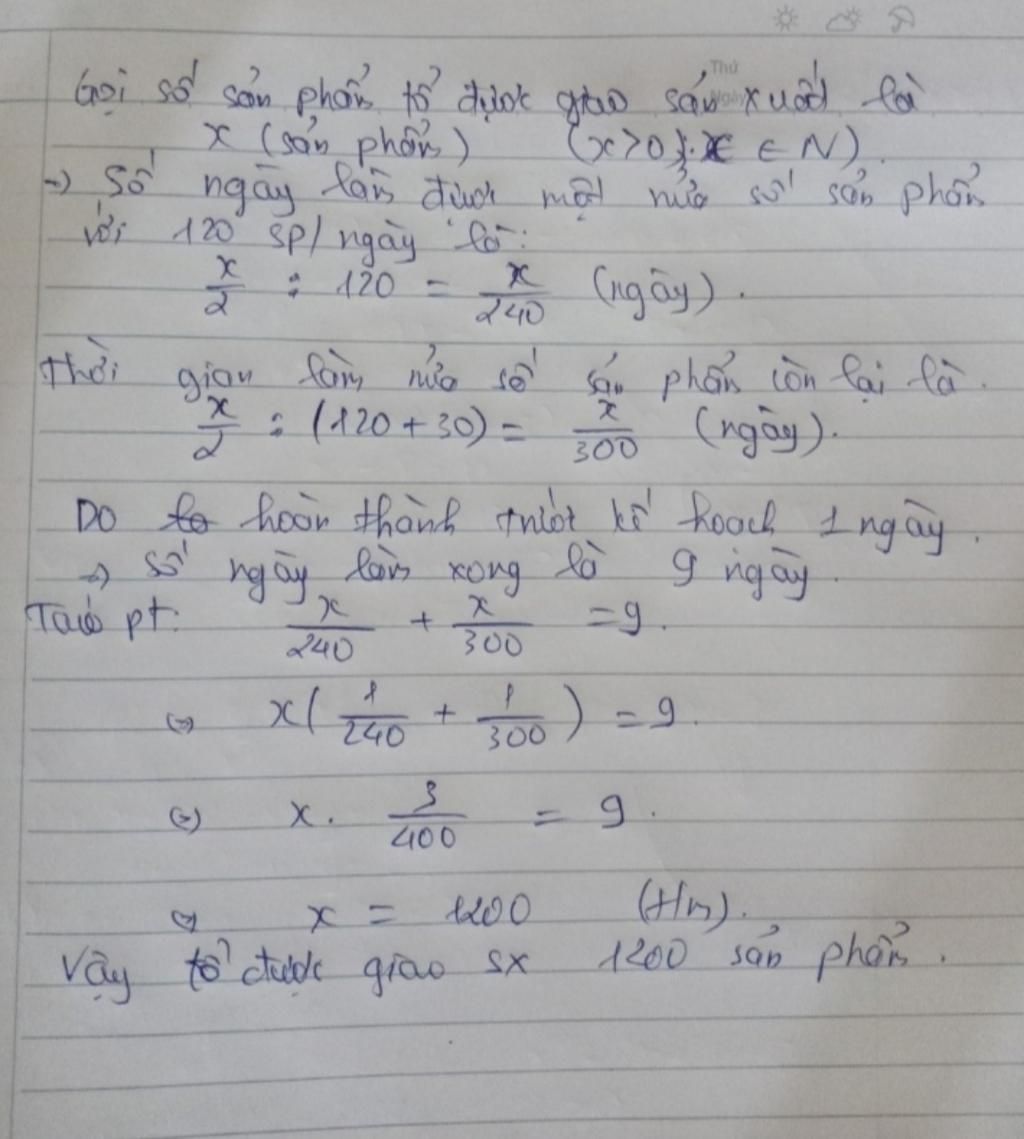 Thứ
Ngày
Gọi số sản phẩm tổ được giao sản xuất là
x (sản phẩm) (x>0; x ∈ N).
=> Số ngày làm được một nửa số sản phẩm
với 120 sp/ngày là:
x/2 : 120 = x/240 (ngày).
Thời gian làm nửa số sản phẩm còn lại là.
x/2 : (120+30) = x/300 (ngày).
Do hoàn thành trước kế hoạch 1 ngày.
=> số ngày làm xong là 9 ngày.
Ta có pt: x/240 + x/300 = 9.
<=> x(1/240 + 1/300) = 9.
<=> x. 3/400 = 9.
<=> x = 1200 (t/m).
Vậy tổ được giao sx 1200 sản phẩm.